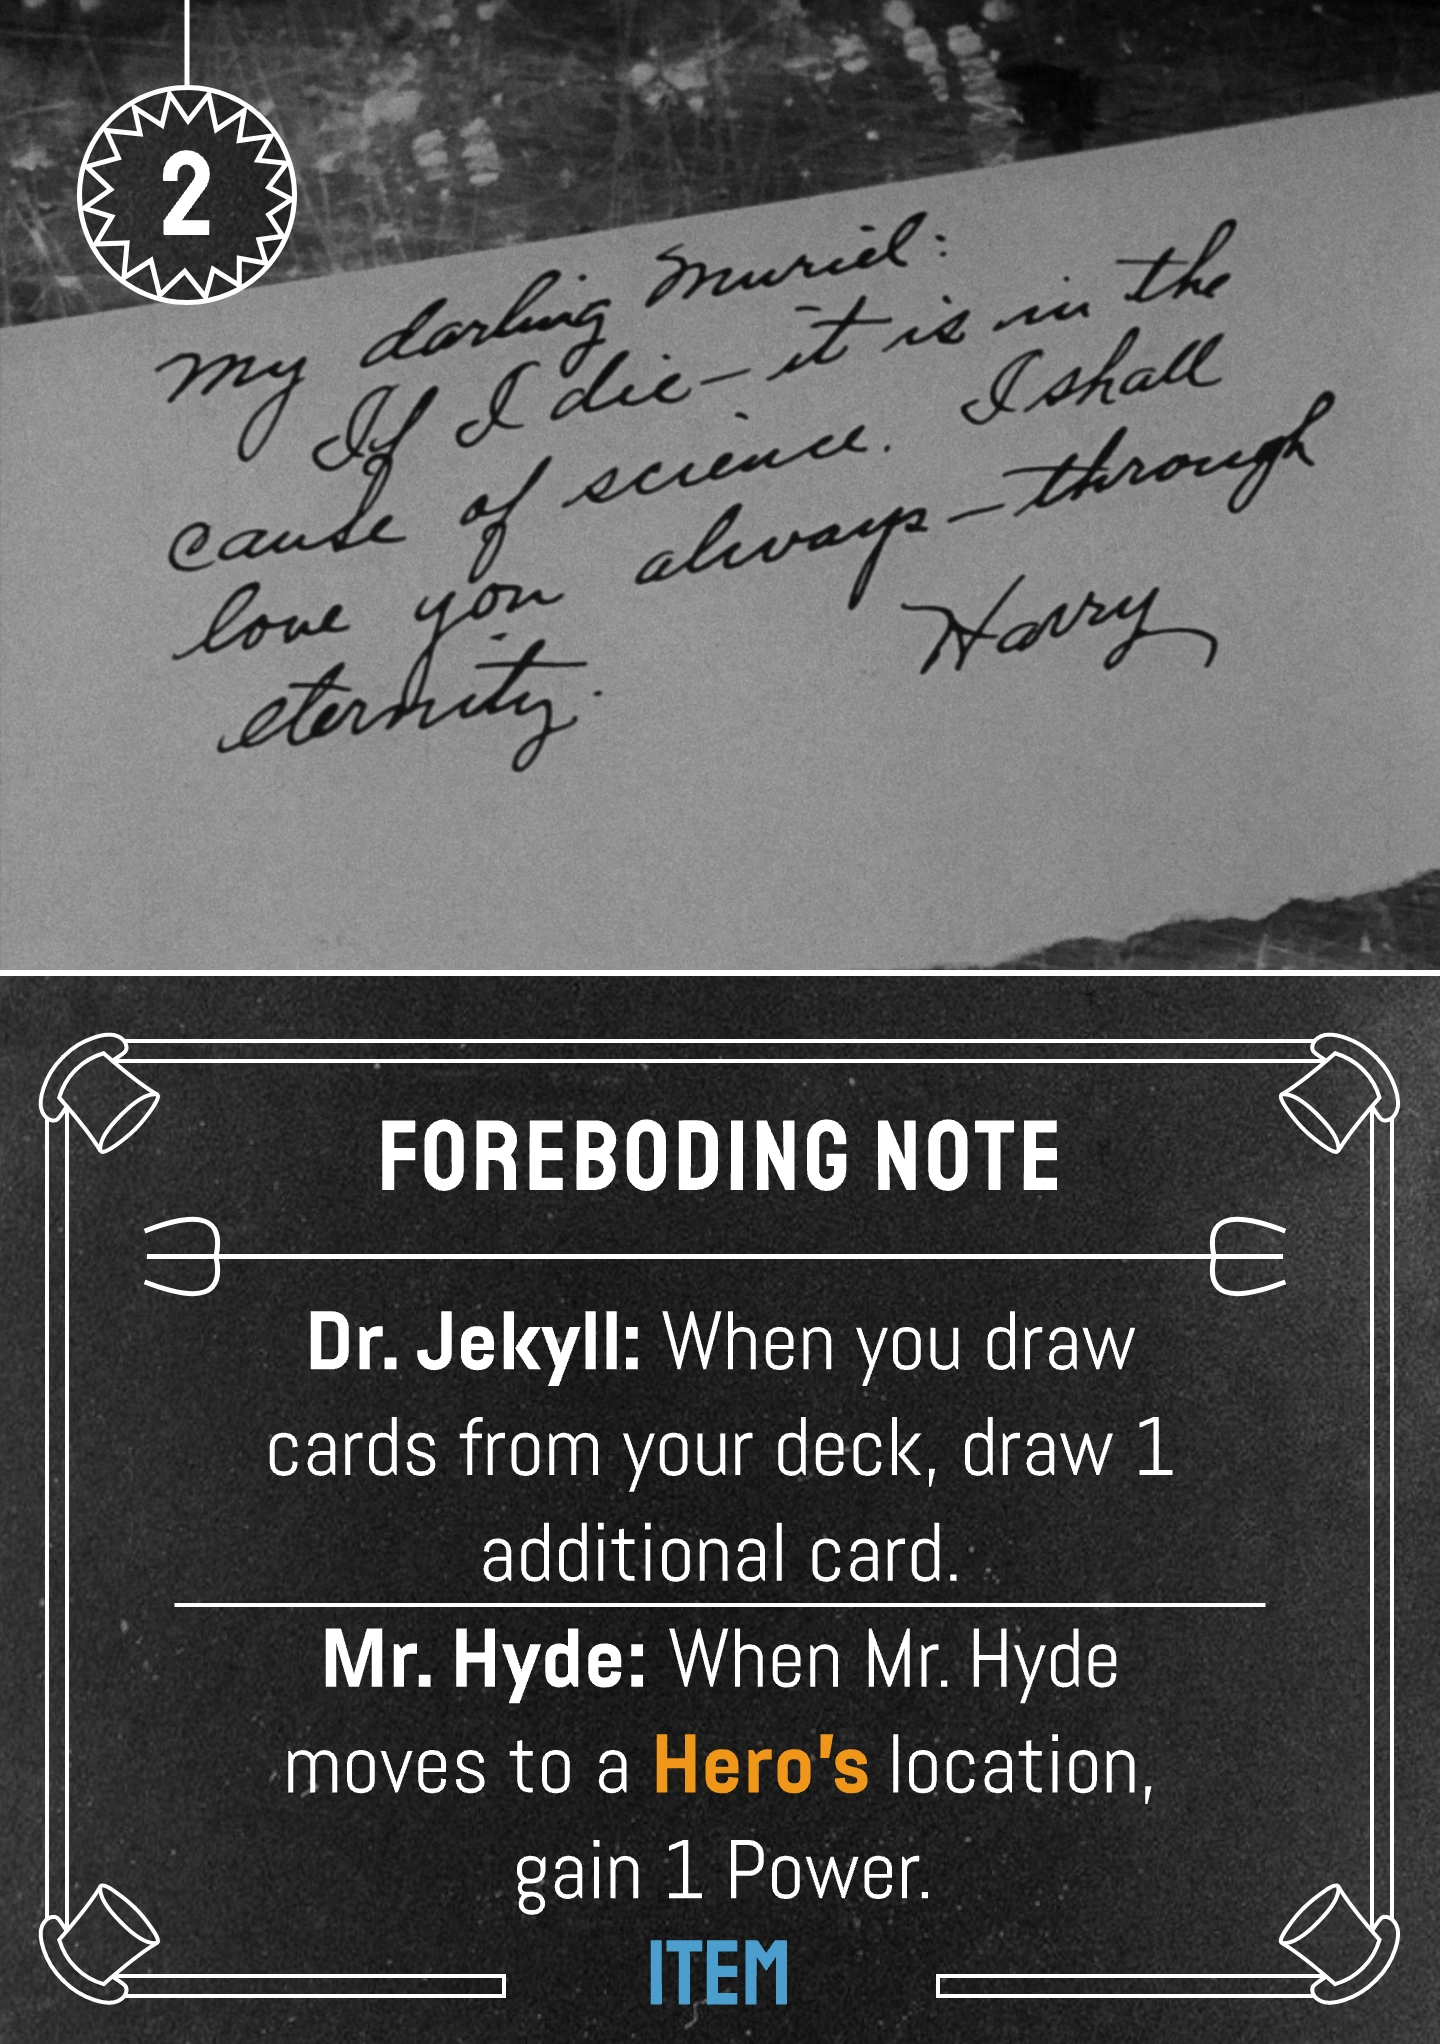 2
My darling Muriel:
If I die – it is in the
cause of science. I shall
love you always – through
eternity.
Harry
FOREBODING NOTE
Dr. Jekyll: When you draw
cards from your deck, draw 1
additional card.
Mr. Hyde: When Mr. Hyde
moves to a Hero's location,
gain 1 Power.
ITEM